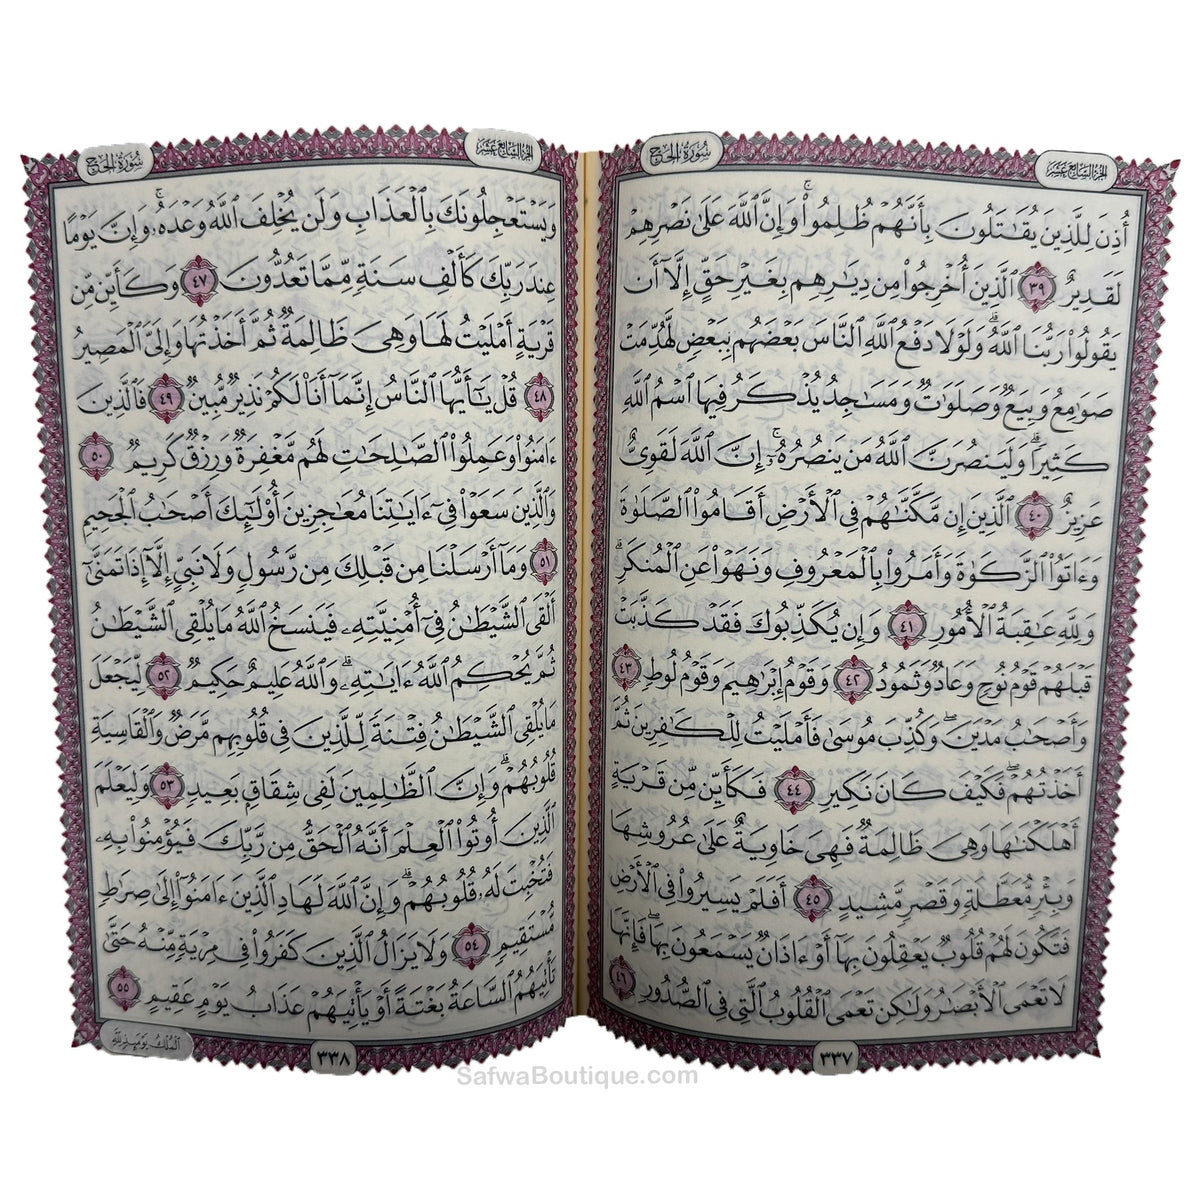 سورة الحج
الجزء السابع عشر
أُذِنَ لِلَّذِينَ يُقَٰتَلُونَ بِأَنَّهُمْ ظُلِمُوا۟ ۚ وَإِنَّ ٱللَّهَ عَلَىٰ نَصْرِهِمْ
لَقَدِيرٌ ٣٩ ٱلَّذِينَ أُخْرِجُوا۟ مِن دِيَٰرِهِم بِغَيْرِ حَقٍّ إِلَّآ أَن
يَقُولُوا۟ رَبُّنَا ٱللَّهُ ۗ وَلَوْلَا دَفْعُ ٱللَّهِ ٱلنَّاسَ بَعْضَهُم بِبَعْضٍ لَّهُدِّمَتْ
صَوَٰمِعُ وَبِيَعٌ وَصَلَوَٰتٌ وَمَسَٰجِدُ يُذْكَرُ فِيهَا ٱسْمُ ٱللَّهِ
كَثِيرًا ۗ وَلَيَنصُرَنَّ ٱللَّهُ مَن يَنصُرُهُۥٓ ۗ إِنَّ ٱللَّهَ لَقَوِىٌّ
عَزِيزٌ ٤٠ ٱلَّذِينَ إِن مَّكَّنَّٰهُمْ فِى ٱلْأَرْضِ أَقَامُوا۟ ٱلصَّلَوٰةَ
وَءَاتَوُا۟ ٱلزَّكَوٰةَ وَأَمَرُوا۟ بِٱلْمَعْرُوفِ وَنَهَوْا۟ عَنِ ٱلْمُنكَرِ ۗ
وَلِلَّهِ عَٰقِبَةُ ٱلْأُمُورِ ٤١ وَإِن يُكَذِّبُوكَ فَقَدْ كَذَّبَتْ
قَبْلَهُمْ قَوْمُ نُوحٍ وَعَادٌ وَثَمُودُ ٤٢ وَقَوْمُ إِبْرَٰهِيمَ وَقَوْمُ لُوطٍ ٤٣
وَأَصْحَٰبُ مَدْيَنَ ۖ وَكُذِّبَ مُوسَىٰ فَأَمْلَيْتُ لِلْكَٰفِرِينَ ثُمَّ
أَخَذْتُهُمْ ۖ فَكَيْفَ كَانَ نَكِيرِ ٤٤ فَكَأَيِّن مِّن قَرْيَةٍ
أَهْلَكْنَٰهَا وَهِىَ ظَالِمَةٌ فَهِىَ خَاوِيَةٌ عَلَىٰ عُرُوشِهَا
وَبِئْرٍ مُّعَطَّلَةٍ وَقَصْرٍ مَّشِيدٍ ٤٥ أَفَلَمْ يَسِيرُوا۟ فِى ٱلْأَرْضِ
فَتَكُونَ لَهُمْ قُلُوبٌ يَعْقِلُونَ بِهَآ أَوْ ءَاذَانٌ يَسْمَعُونَ بِهَا ۖ فَإِنَّهَا
لَا تَعْمَى ٱلْأَبْصَٰرُ وَلَٰكِن تَعْمَى ٱلْقُلُوبُ ٱلَّتِى فِى ٱلصُّدُورِ ٤٦
٣٣٧
سورة الحج
الجزء السابع عشر
وَيَسْتَعْجِلُونَكَ بِٱلْعَذَابِ وَلَن يُخْلِفَ ٱللَّهُ وَعْدَهُۥ ۚ وَإِنَّ يَوْمًا
عِندَ رَبِّكَ كَأَلْفِ سَنَةٍ مِّمَّا تَعُدُّونَ ٤٧ وَكَأَيِّن مِّن
قَرْيَةٍ أَمْلَيْتُ لَهَا وَهِىَ ظَالِمَةٌ ثُمَّ أَخَذْتُهَا وَإِلَىَّ ٱلْمَصِيرُ
٤٨ قُلْ يَٰٓأَيُّهَا ٱلنَّاسُ إِنَّمَآ أَنَا۠ لَكُمْ نَذِيرٌ مُّبِينٌ ٤٩ فَٱلَّذِينَ
ءَامَنُوا۟ وَعَمِلُوا۟ ٱلصَّٰلِحَٰتِ لَهُم مَّغْفِرَةٌ وَرِزْقٌ كَرِيمٌ ٥٠
وَٱلَّذِينَ سَعَوْا۟ فِىٓ ءَايَٰتِنَا مُعَٰجِزِينَ أُو۟لَٰٓئِكَ أَصْحَٰبُ ٱلْجَحِيمِ
٥١ وَمَآ أَرْسَلْنَا مِن قَبْلِكَ مِن رَّسُولٍ وَلَا نَبِىٍّ إِلَّآ إِذَا تَمَنَّىٰٓ
أَلْقَى ٱلشَّيْطَٰنُ فِىٓ أُمْنِيَّتِهِۦ فَيَنسَخُ ٱللَّهُ مَا يُلْقِى ٱلشَّيْطَٰنُ
ثُمَّ يُحْكِمُ ٱللَّهُ ءَايَٰتِهِۦ ۗ وَٱللَّهُ عَلِيمٌ حَكِيمٌ ٥٢ لِّيَجْعَلَ
مَا يُلْقِى ٱلشَّيْطَٰنُ فِتْنَةً لِّلَّذِينَ فِى قُلُوبِهِم مَّرَضٌ وَٱلْقَاسِيَةِ
قُلُوبُهُمْ ۗ وَإِنَّ ٱلظَّٰلِمِينَ لَفِى شِقَاقٍۭ بَعِيدٍ ٥٣ وَلِيَعْلَمَ
ٱلَّذِينَ أُوتُوا۟ ٱلْعِلْمَ أَنَّهُ ٱلْحَقُّ مِن رَّبِّكَ فَيُؤْمِنُوا۟ بِهِۦ
فَتُخْبِتَ لَهُۥ قُلُوبُهُمْ ۗ وَإِنَّ ٱللَّهَ لَهَادِ ٱلَّذِينَ ءَامَنُوٓا۟ إِلَىٰ صِرَٰطٍ
مُّسْتَقِيمٍ ٥٤ وَلَا يَزَالُ ٱلَّذِينَ كَفَرُوا۟ فِى مِرْيَةٍ مِّنْهُ حَتَّىٰ
تَأْتِيَهُمُ ٱلسَّاعَةُ بَغْتَةً أَوْ يَأْتِيَهُمْ عَذَابُ يَوْمٍ عَقِيمٍ ٥٥
الملك يومئذ لله
٣٣٨
SafwaBoutique.com